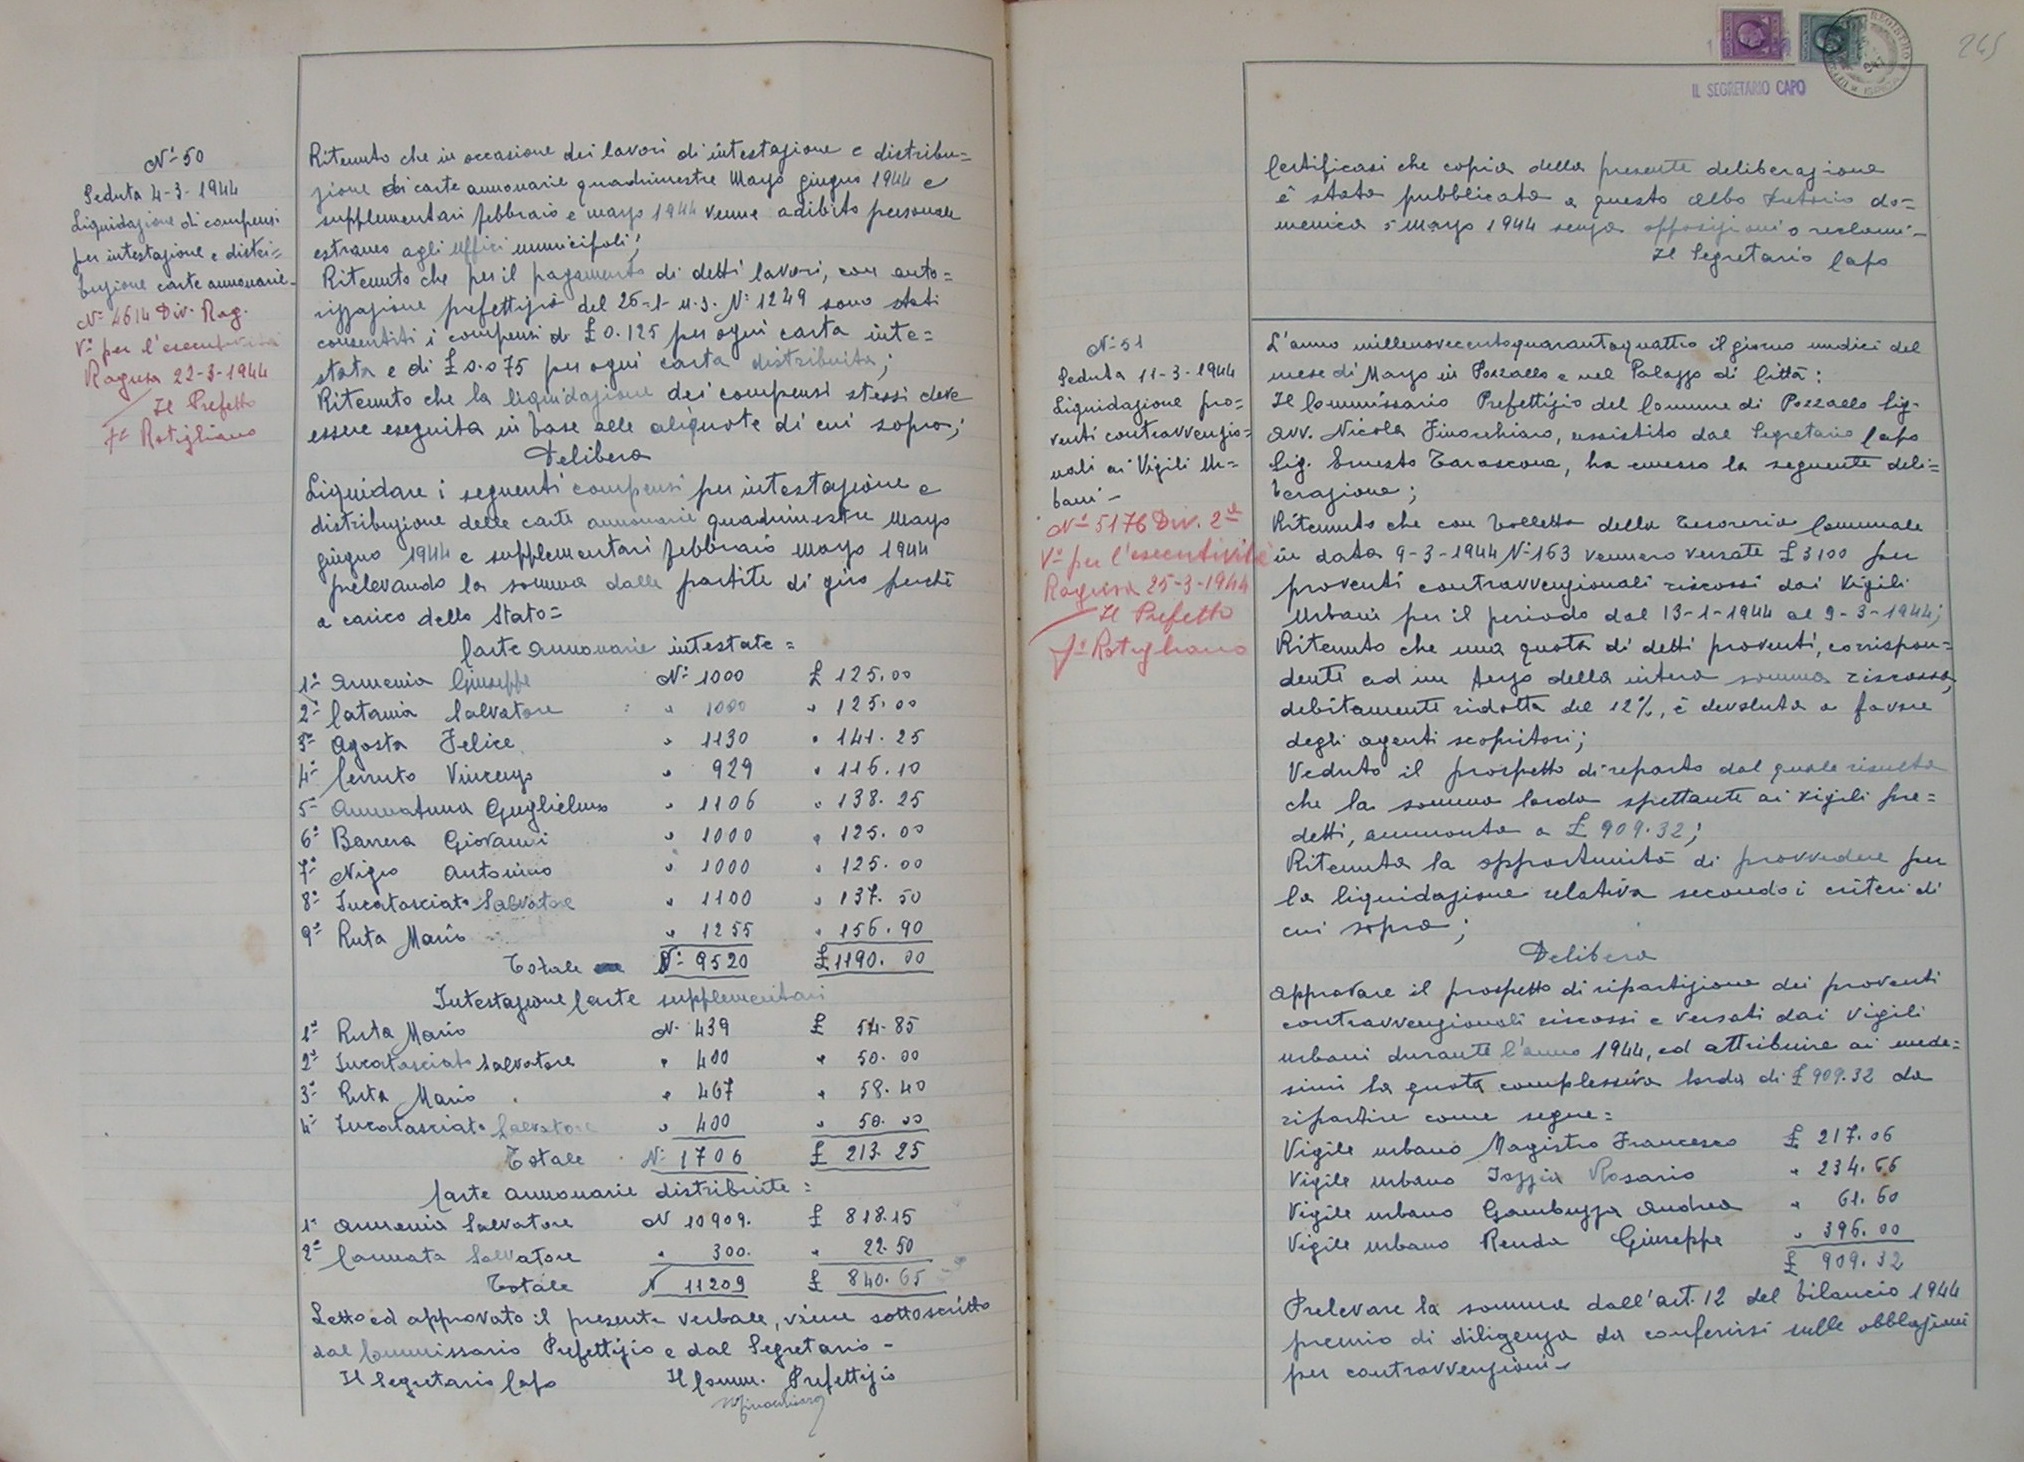 N° 50
Seduta 4-3-1944
Liquidazione di compensi
per intestazione e distri=
buzione carte annonarie.
N° 4614 Div. Rag.
V° per l'esecutività
Ragusa 22-3-1944
Il Prefetto
F° Rotigliano
Ritenuto che in occasione dei lavori di intestazione e distribu=
zione di carte annonarie quadrimestre Marzo giugno 1944 e
supplementari febbraio e marzo 1944 venne adibito personale
estraneo agli uffici municipali;
Ritenuto che per il pagamento di detti lavori, con auto=
rizzazione prefettizia del 26-1-u.s. N° 1249 sono stati
consentiti i compensi di £ 0.125 per ogni carta inte=
stata e di £ 0.075 per ogni carta distribuita;
Ritenuto che la liquidazione dei compensi stessi deve
essere eseguita in base alle aliquote di cui sopra;
Delibera
Liquidare i seguenti compensi per intestazione e
distribuzione delle carte annonarie quadrimestre Marzo
giugno 1944 e supplementari febbraio marzo 1944
prelevando la somma dalle partite di giro perchè
a carico dello Stato=
Carte annonarie intestate=
1° Armenia Giuseppe N° 1000 £ 125.00
2° Catania Salvatore " 1000 " 125.00
3° Agosta Felice " 1130 " 141.25
4° Cerruto Vincenzo " 929 " 116.10
5° Ammatuna Guglielmo " 1106 " 138.25
6° Barrera Giovanni " 1000 " 125.00
7° Nigro Antonino " 1000 " 125.00
8° Sucatasciato Salvatore " 1100 " 137.50
9° Ruta Mario " 1255 " 156.90
Totale N° 9520 £ 1190.00
Intestazione Carte supplementari
1° Ruta Mario N° 439 £ 54.85
2° Sucatasciato Salvatore " 400 " 50.00
3° Ruta Mario " 467 " 58.40
4° Sucatasciato Salvatore " 400 " 50.00
Totale N° 1706 £ 213.25
Carte annonarie distribuite=
1° Armenia Salvatore N 10909. £ 818.15
2° Cannata Salvatore " 300. " 22.50
Totale N 11209 £ 840.65
Letto ed approvato il presente verbale, viene sottoscritto
dal Commissario Prefettizio e dal Segretario-
Il Segretario Capo Il Comm. Prefettizio
NFinocchiaro
IL SEGRETARIO CAPO
245
Certificasi che copia della presente deliberazione
è stata pubblicata a questo Albo Pretorio do=
menica 5 Marzo 1944 senza opposizioni o reclami-
Il Segretario Capo
N° 51
Seduta 11-3-1944
Liquidazione pro=
venti contravvenzio=
nali ai Vigili Ur=
bani-
N° 5176 Div. 2ª
V° per l'esecutività
Ragusa 25-3-1944
Il Prefetto
F° Rotigliano
L'anno millenovecentoquarantaquattro il giorno undici del
mese di Marzo in Pozzallo e nel Palazzo di Città:
Il Commissario Prefettizio del Comune di Pozzallo Sig.
Avv. Nicola Finocchiaro, assistito dal Segretario Capo
Sig. Ernesto Tarascone, ha emesso la seguente deli=
berazione;
Ritenuto che con bolletta della Tesoreria Comunale
in data 9-3-1944 N° 163 vennero versate £ 3100 per
proventi contravvenzionali riscossi dai Vigili
Urbani per il periodo dal 13-1-1944 al 9-3-1944;
Ritenuto che una quota di detti proventi, corrispon=
dente ad un terzo della intera somma riscossa,
debitamente ridotta del 12%, è devoluta a favore
degli agenti scopritori;
Veduto il prospetto di reparto dal quale risulta
che la somma lorda spettante ai vigili pre=
detti, ammonta a £ 909.32;
Ritenuta la opportunità di provvedere per
la liquidazione relativa secondo i criteri di
cui sopra;
Delibera
Approvare il prospetto di ripartizione dei proventi
contravvenzionali riscossi e versati dai vigili
urbani durante l'anno 1944, ed attribuire ai mede=
simi la quota complessiva lorda di £ 909.32 da
ripartire come segue=
Vigile urbano Magistro Francesco £ 217.06
Vigile urbano Iozzia Rosario " 234.66
Vigile urbano Gambuzza Andrea " 61.60
Vigile urbano Renda Giuseppe " 396.00
£ 909.32
Prelevare la somma dall'art. 12 del bilancio 1944
premio di diligenza da conferirsi sulle obblazioni
per contravvenzioni-